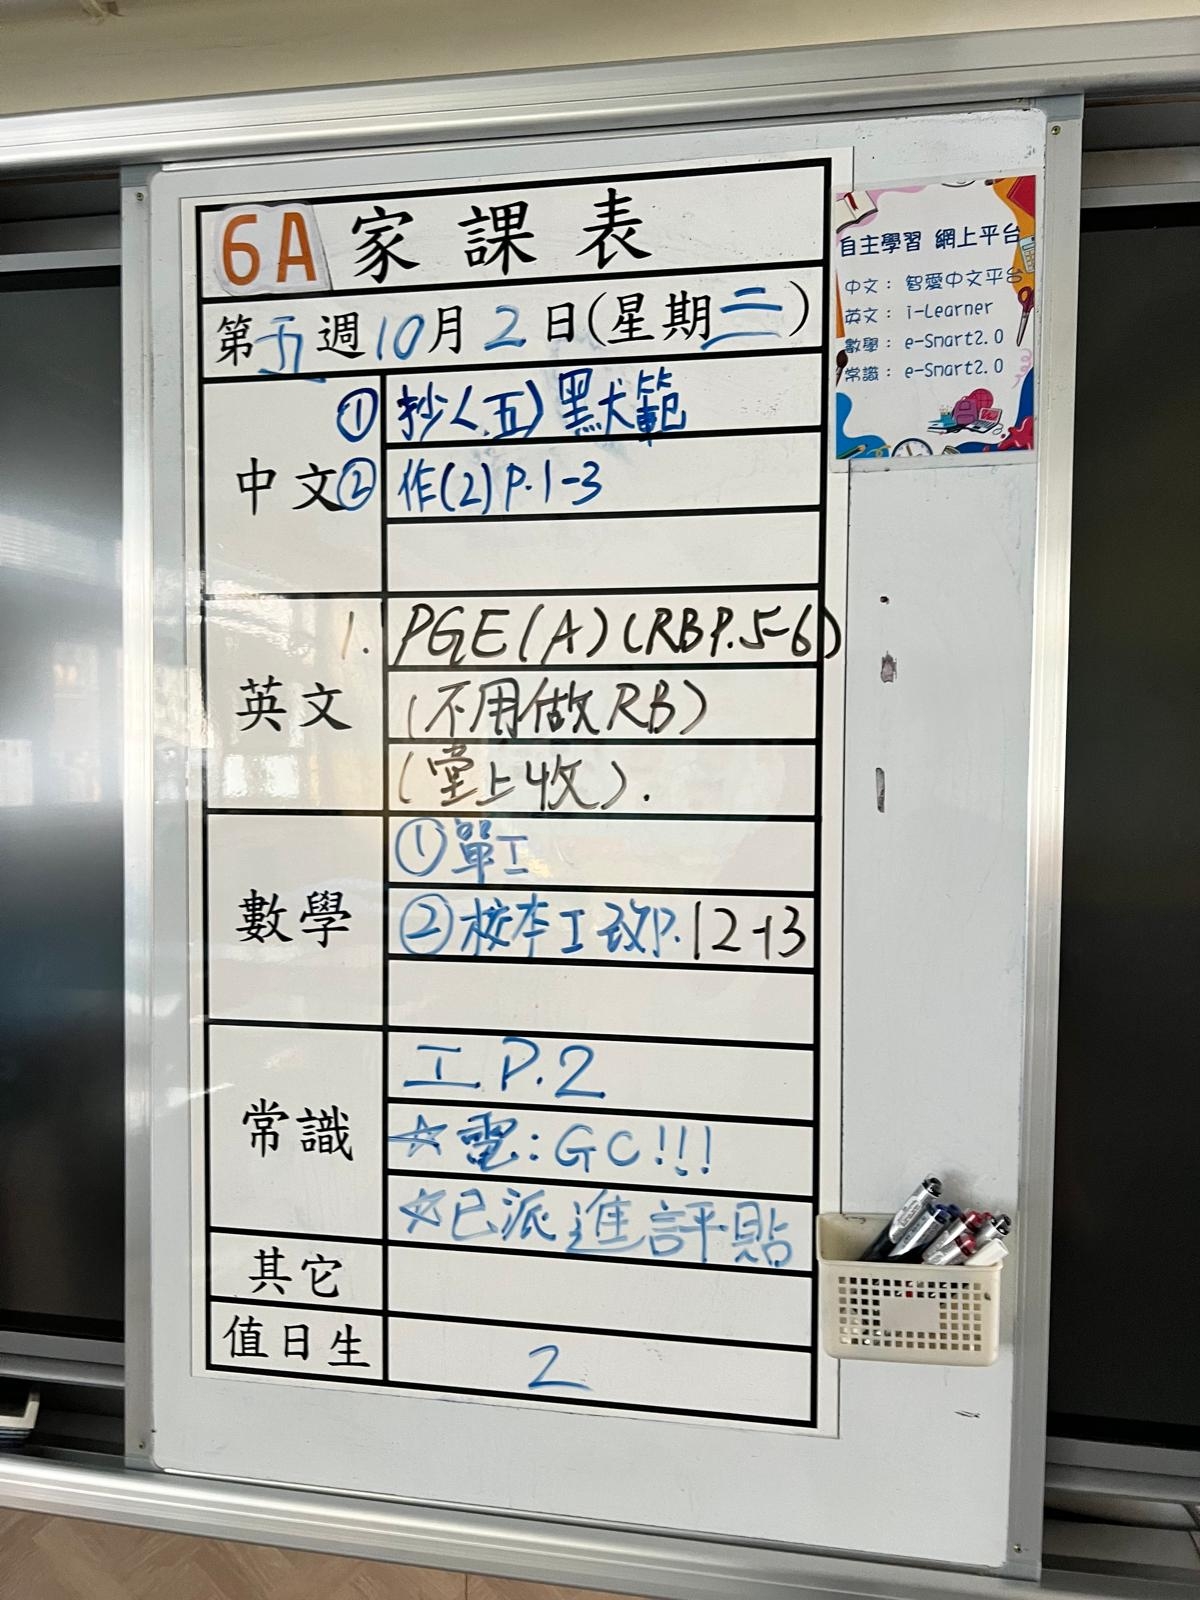 6A 家課表
第五週10月2日(星期三)
中文
① 抄<五>默範
② 作(2)P.1-3
英文
1. PGE(A)(RBP.5-6)
(不用做RB)
(堂上收).
數學
①單工
②校本工改P.12-13
常識
工.P.2
☆電:GC!!!
☆已派進評貼
其它
值日生
2
自主學習 網上平台
中文：智愛中文平台
英文：i-Learner
數學：e-Smart2.0
常識：e-Smart2.0